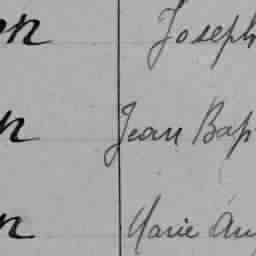 on Joseph
n Jean Bap
n Marie Au